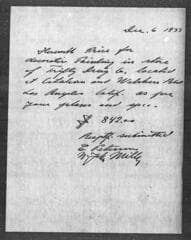 Dec. 6 1933
Herewith Price for
decorative Painting in store
of Thrifty Drug Co. located
at Catalina and Wilshire Blvd
Los Angeles Calif. as per
your plans and spec.
$ 842.00
Respt. submitted
E. Peterson